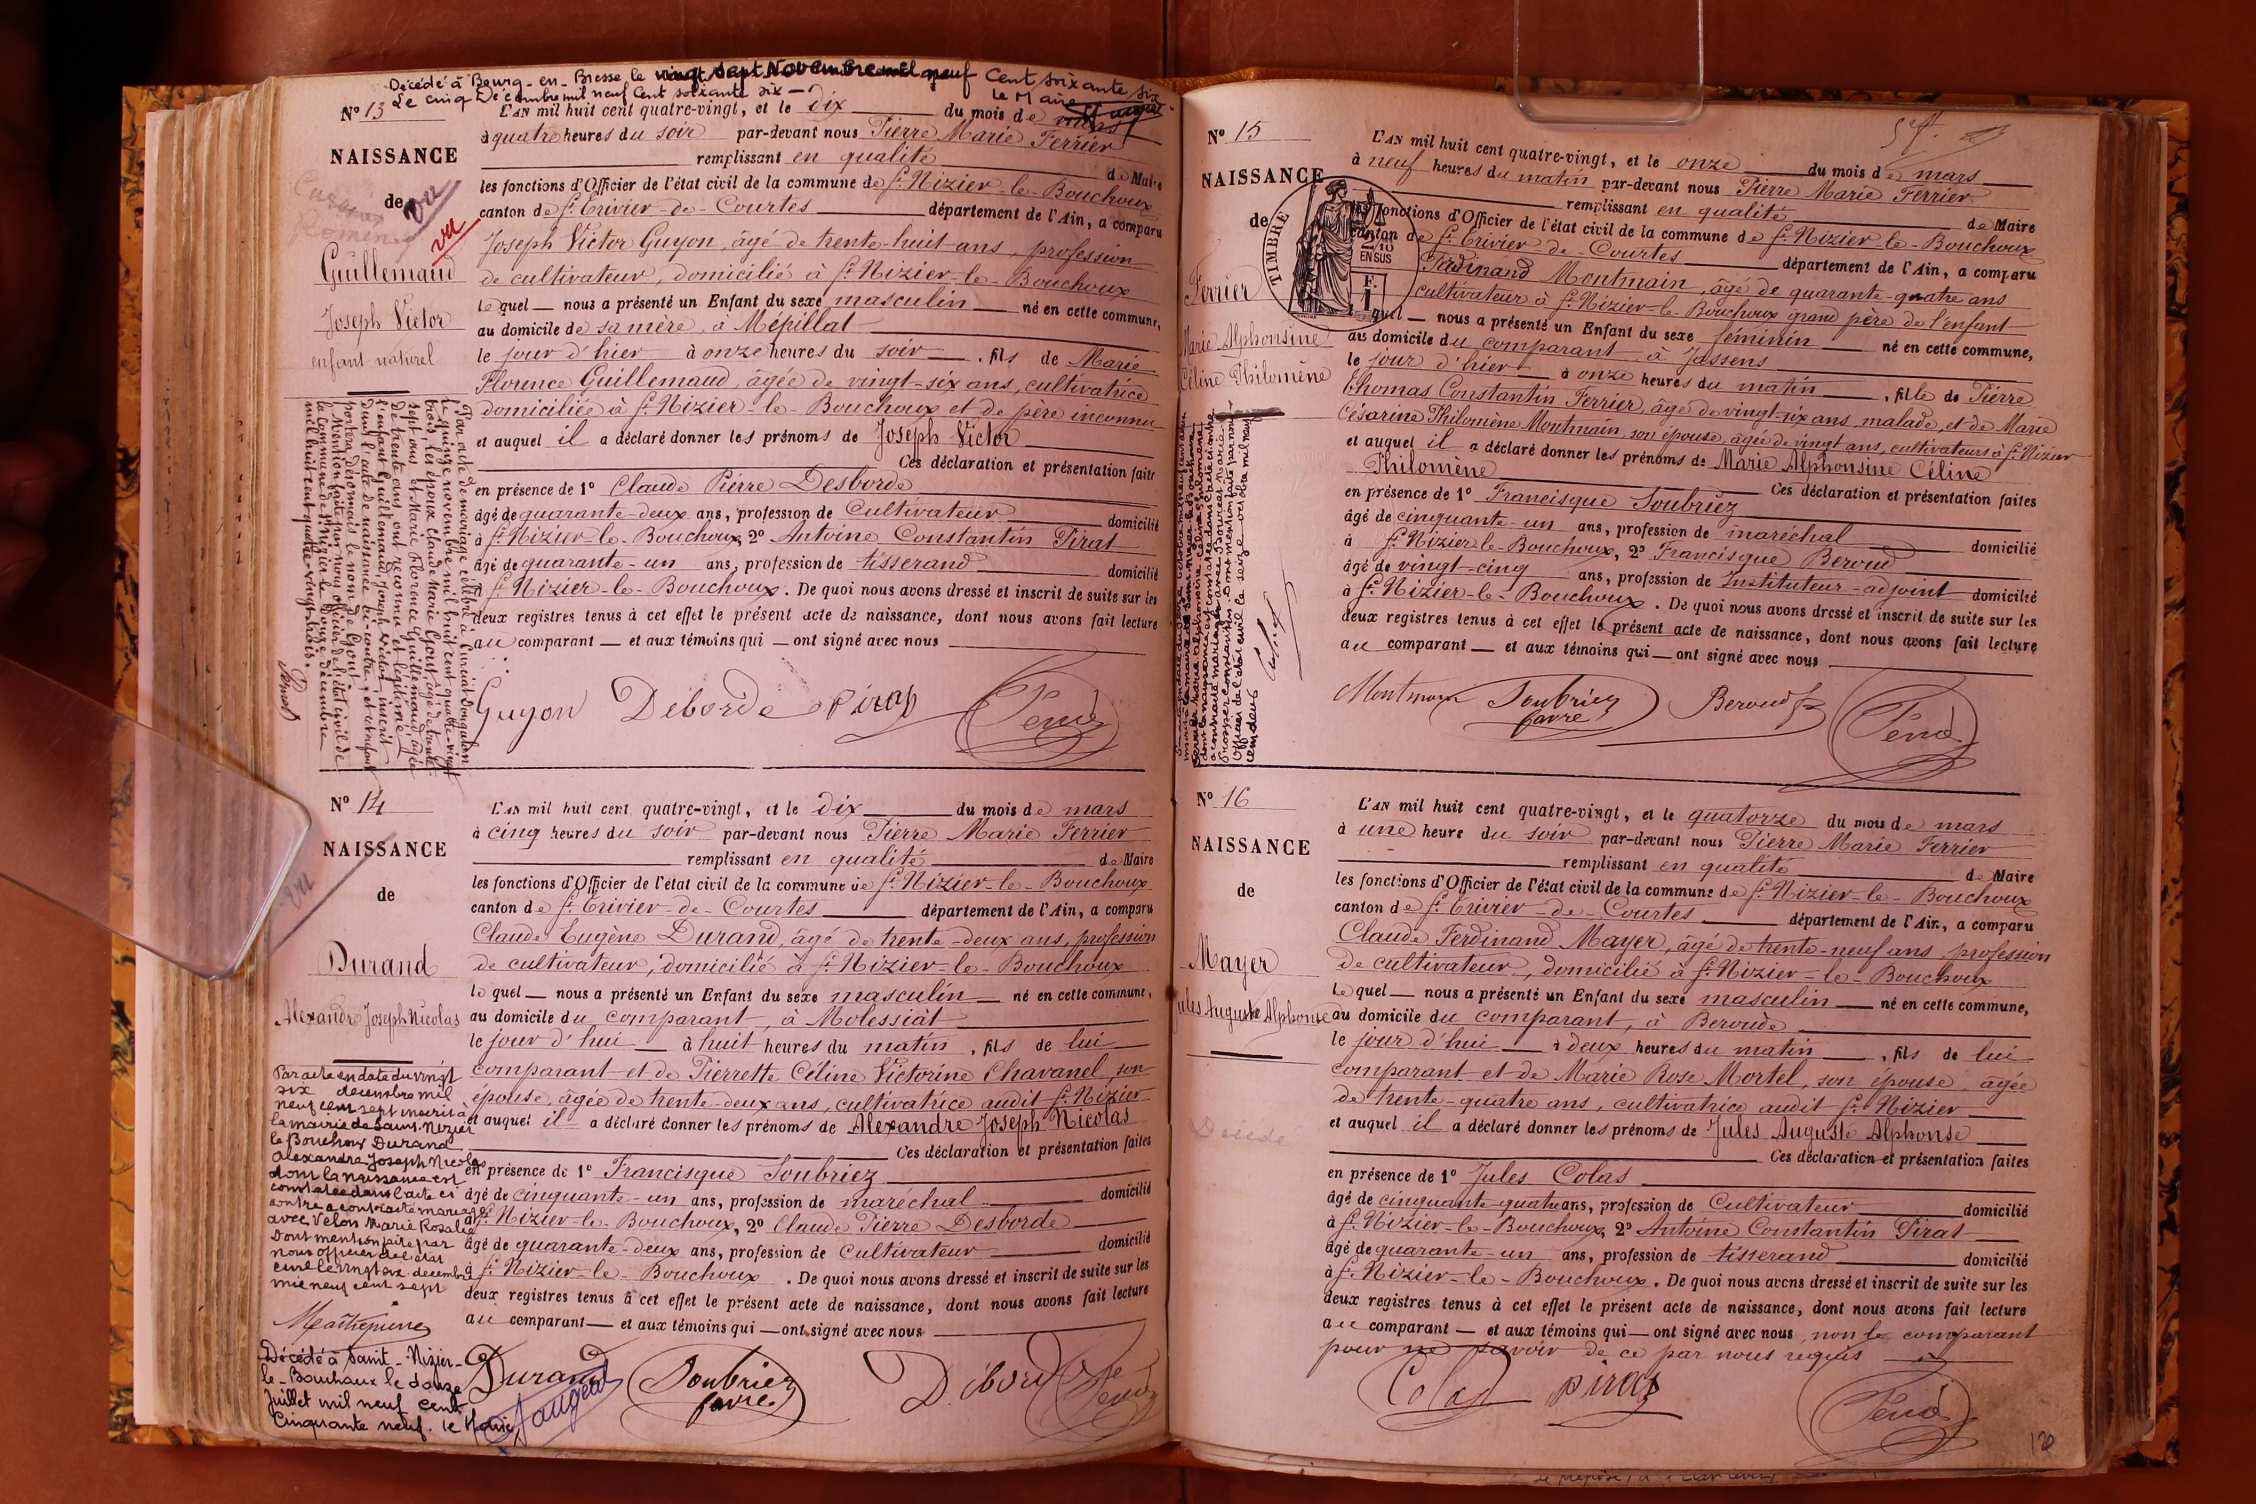 Décédé à Bourg-en-Bresse le vingt sept Novembre mil neuf Cent soixante six
Le cinq Décembre mil neuf Cent soixante six — Le Maire
N° 13
NAISSANCE
de
vu
vu
Guillemaud
Joseph Victor
enfant naturel
L'AN mil huit cent quatre-vingt, et le dix du mois de mars
à quatre heures du soir par-devant nous Pierre Marie Ferrier
remplissant en qualité de Maire
les fonctions d'Officier de l'état civil de la commune de St Nizier-le-Bouchoux
canton de St Trivier-de-Courtes département de l'Ain, a comparu
Joseph Victor Guyon, âgé de trente-huit ans, profession
de cultivateur, domicilié à St Nizier-le-Bouchoux
lequel — nous a présenté un Enfant du sexe masculin né en cette commune,
au domicile de sa mère, à Mépillat
le jour d'hier à onze heures du soir, fils de Marie
Florence Guillemaud, âgée de vingt-six ans, cultivatrice
domiciliée à St Nizier-le-Bouchoux et de père inconnu
et auquel il a déclaré donner les prénoms de Joseph Victor
Ces déclaration et présentation faites
en présence de 1° Claude Pierre Desborde
âgé de quarante-deux ans, profession de Cultivateur domicilié
à St Nizier-le-Bouchoux, 2° Antoine Constantin Pirat
âgé de quarante-un ans, profession de tisserand domicilié
à St Nizier-le-Bouchoux. De quoi nous avons dressé et inscrit de suite sur les
deux registres tenus à cet effet le présent acte de naissance, dont nous avons fait lecture
au comparant — et aux témoins qui — ont signé avec nous
Guyon Déborde Pirat
Par acte de mariage célébré à Curciat-Dongalon
le quinze novembre mil huit cent quatre-vingt
trois, les époux Claude Marie Guyot, âgé de trente
sept ans et Marie Florence Guillemaud, âgée
de trente ans ont reconnu et légitimé
l'enfant Guillemaud, Joseph Victor inscrit
dans l'acte de naissance ci-contre; et cet enfant
portera désormais le nom de
Mention faite par nous officier de l'état civil de
la commune de St Nizier le Douze décembre
mil huit cent quatre-vingt-trois.
N° 14
NAISSANCE
de
vu
Durand
Alexandre Joseph Nicolas
L'AN mil huit cent quatre-vingt, et le dix du mois de mars
à cinq heures du soir par-devant nous Pierre Marie Ferrier
remplissant en qualité de Maire
les fonctions d'Officier de l'état civil de la commune de St Nizier-le-Bouchoux
canton de St Trivier-de-Courtes département de l'Ain, a comparu
Claude Eugène Durand, âgé de trente-deux ans, profession
de cultivateur, domicilié à St Nizier-le-Bouchoux
lequel — nous a présenté un Enfant du sexe masculin — né en cette commune,
au domicile du comparant, à Molessiat
le jour d'hui à huit heures du matin, fils de lui
comparant et de Pierrette Céline Victorine Chavanel, son
épouse âgée de trente-deux ans, cultivatrice audit St Nizier
et auquel il a déclaré donner les prénoms de Alexandre Joseph Nicolas
Ces déclaration et présentation faites
en présence de 1° Francisque Soubriez
âgé de cinquante-un ans, profession de maréchal domicilié
à St Nizier-le-Bouchoux, 2° Claude Pierre Desborde
âgé de quarante-deux ans, profession de Cultivateur domicilié
à St Nizier-le-Bouchoux. De quoi nous avons dressé et inscrit de suite sur les
deux registres tenus à cet effet le présent acte de naissance, dont nous avons fait lecture
au comparant — et aux témoins qui — ont signé avec nous
Durand Soubriez Déborde
favre
Par acte en date du vingt
six decembre mil
neuf cent sept inscrit à
la mairie de Saint Nizier
le Bouchoux Durand
Alexandre Joseph Nicolas
dont la naissance est
constatée dans l'acte ci
contre a contracté mariage
avec Velon Marie Rosalie
Dont mention faite par
nous officier de l'etat
civil le vingt six decembre
mil neuf cent sept
Décédé à Saint-Nizier-
le-Bouchoux le douze
Juillet mil neuf cent
Cinquante neuf. Le Maire,
N° 15
NAISSANCE
de
TIMBRE
2/10
EN SUS
Ferrier
Marie Alphonsine
Céline Philomène
L'AN mil huit cent quatre-vingt, et le onze du mois de mars
à neuf heures du matin par-devant nous Pierre Marie Ferrier
remplissant en qualité de Maire
les fonctions d'Officier de l'état civil de la commune de St Nizier-le-Bouchoux
canton de St Trivier-de-Courtes département de l'Ain, a comparu
Ferdinand Montmain, âgé de quarante-quatre ans
cultivateur à St Nizier-le-Bouchoux grand père de l'enfant
lequel — nous a présenté un Enfant du sexe féminin né en cette commune,
au domicile du comparant à Jassens
le jour d'hier à onze heures du matin, fille de Pierre
Thomas Constantin Ferrier, âgé de vingt-six ans, malade, et de Marie
Césarine Philomène Montmain, son épouse, âgée de vingt ans, cultivateurs à St Nizier
et auquel il a déclaré donner les prénoms de Marie Alphonsine Céline
Philomène Ces déclaration et présentation faites
en présence de 1° Francisque Soubriez
âgé de cinquante-un ans, profession de maréchal domicilié
à St Nizier-le-Bouchoux, 2° Francisque Beroud
âgé de vingt-cinq ans, profession de Instituteur-adjoint domicilié
à St Nizier-le-Bouchoux. De quoi nous avons dressé et inscrit de suite sur les
deux registres tenus à cet effet le présent acte de naissance, dont nous avons fait lecture
au comparant — et aux témoins qui — ont signé avec nous
Montmain Soubriez Beroud
favre
N° 16
NAISSANCE
de
Mayer
Jules Auguste Alphonse
Décédé
L'AN mil huit cent quatre-vingt, et le quatorze du mois de mars
à une heure du soir par-devant nous Pierre Marie Ferrier
remplissant en qualité de Maire
les fonctions d'Officier de l'état civil de la commune de St Nizier-le-Bouchoux
canton de St Trivier-de-Courtes département de l'Ain, a comparu
Claude Ferdinand Mayer, âgé de trente-neuf ans, profession
de cultivateur, domicilié à St Nizier-le-Bouchoux
lequel — nous a présenté un Enfant du sexe masculin né en cette commune,
au domicile du comparant, à Beroude
le jour d'hui à deux heures du matin, fils de lui
comparant et de Marie Rose Mortel, son épouse, âgée
de trente-quatre ans, cultivatrice audit St Nizier
et auquel il a déclaré donner les prénoms de Jules Auguste Alphonse
Ces déclaration et présentation faites
en présence de 1° Jules Colas
âgé de cinquante-quatre ans, profession de Cultivateur domicilié
à St Nizier-le-Bouchoux, 2° Antoine Constantin Pirat
âgé de quarante-un ans, profession de tisserand domicilié
à St Nizier-le-Bouchoux. De quoi nous avons dressé et inscrit de suite sur les
deux registres tenus à cet effet le présent acte de naissance, dont nous avons fait lecture
au comparant — et aux témoins qui — ont signé avec nous, non le comparant
pour ne savoir de ce par nous requis
Colas Pirat
120